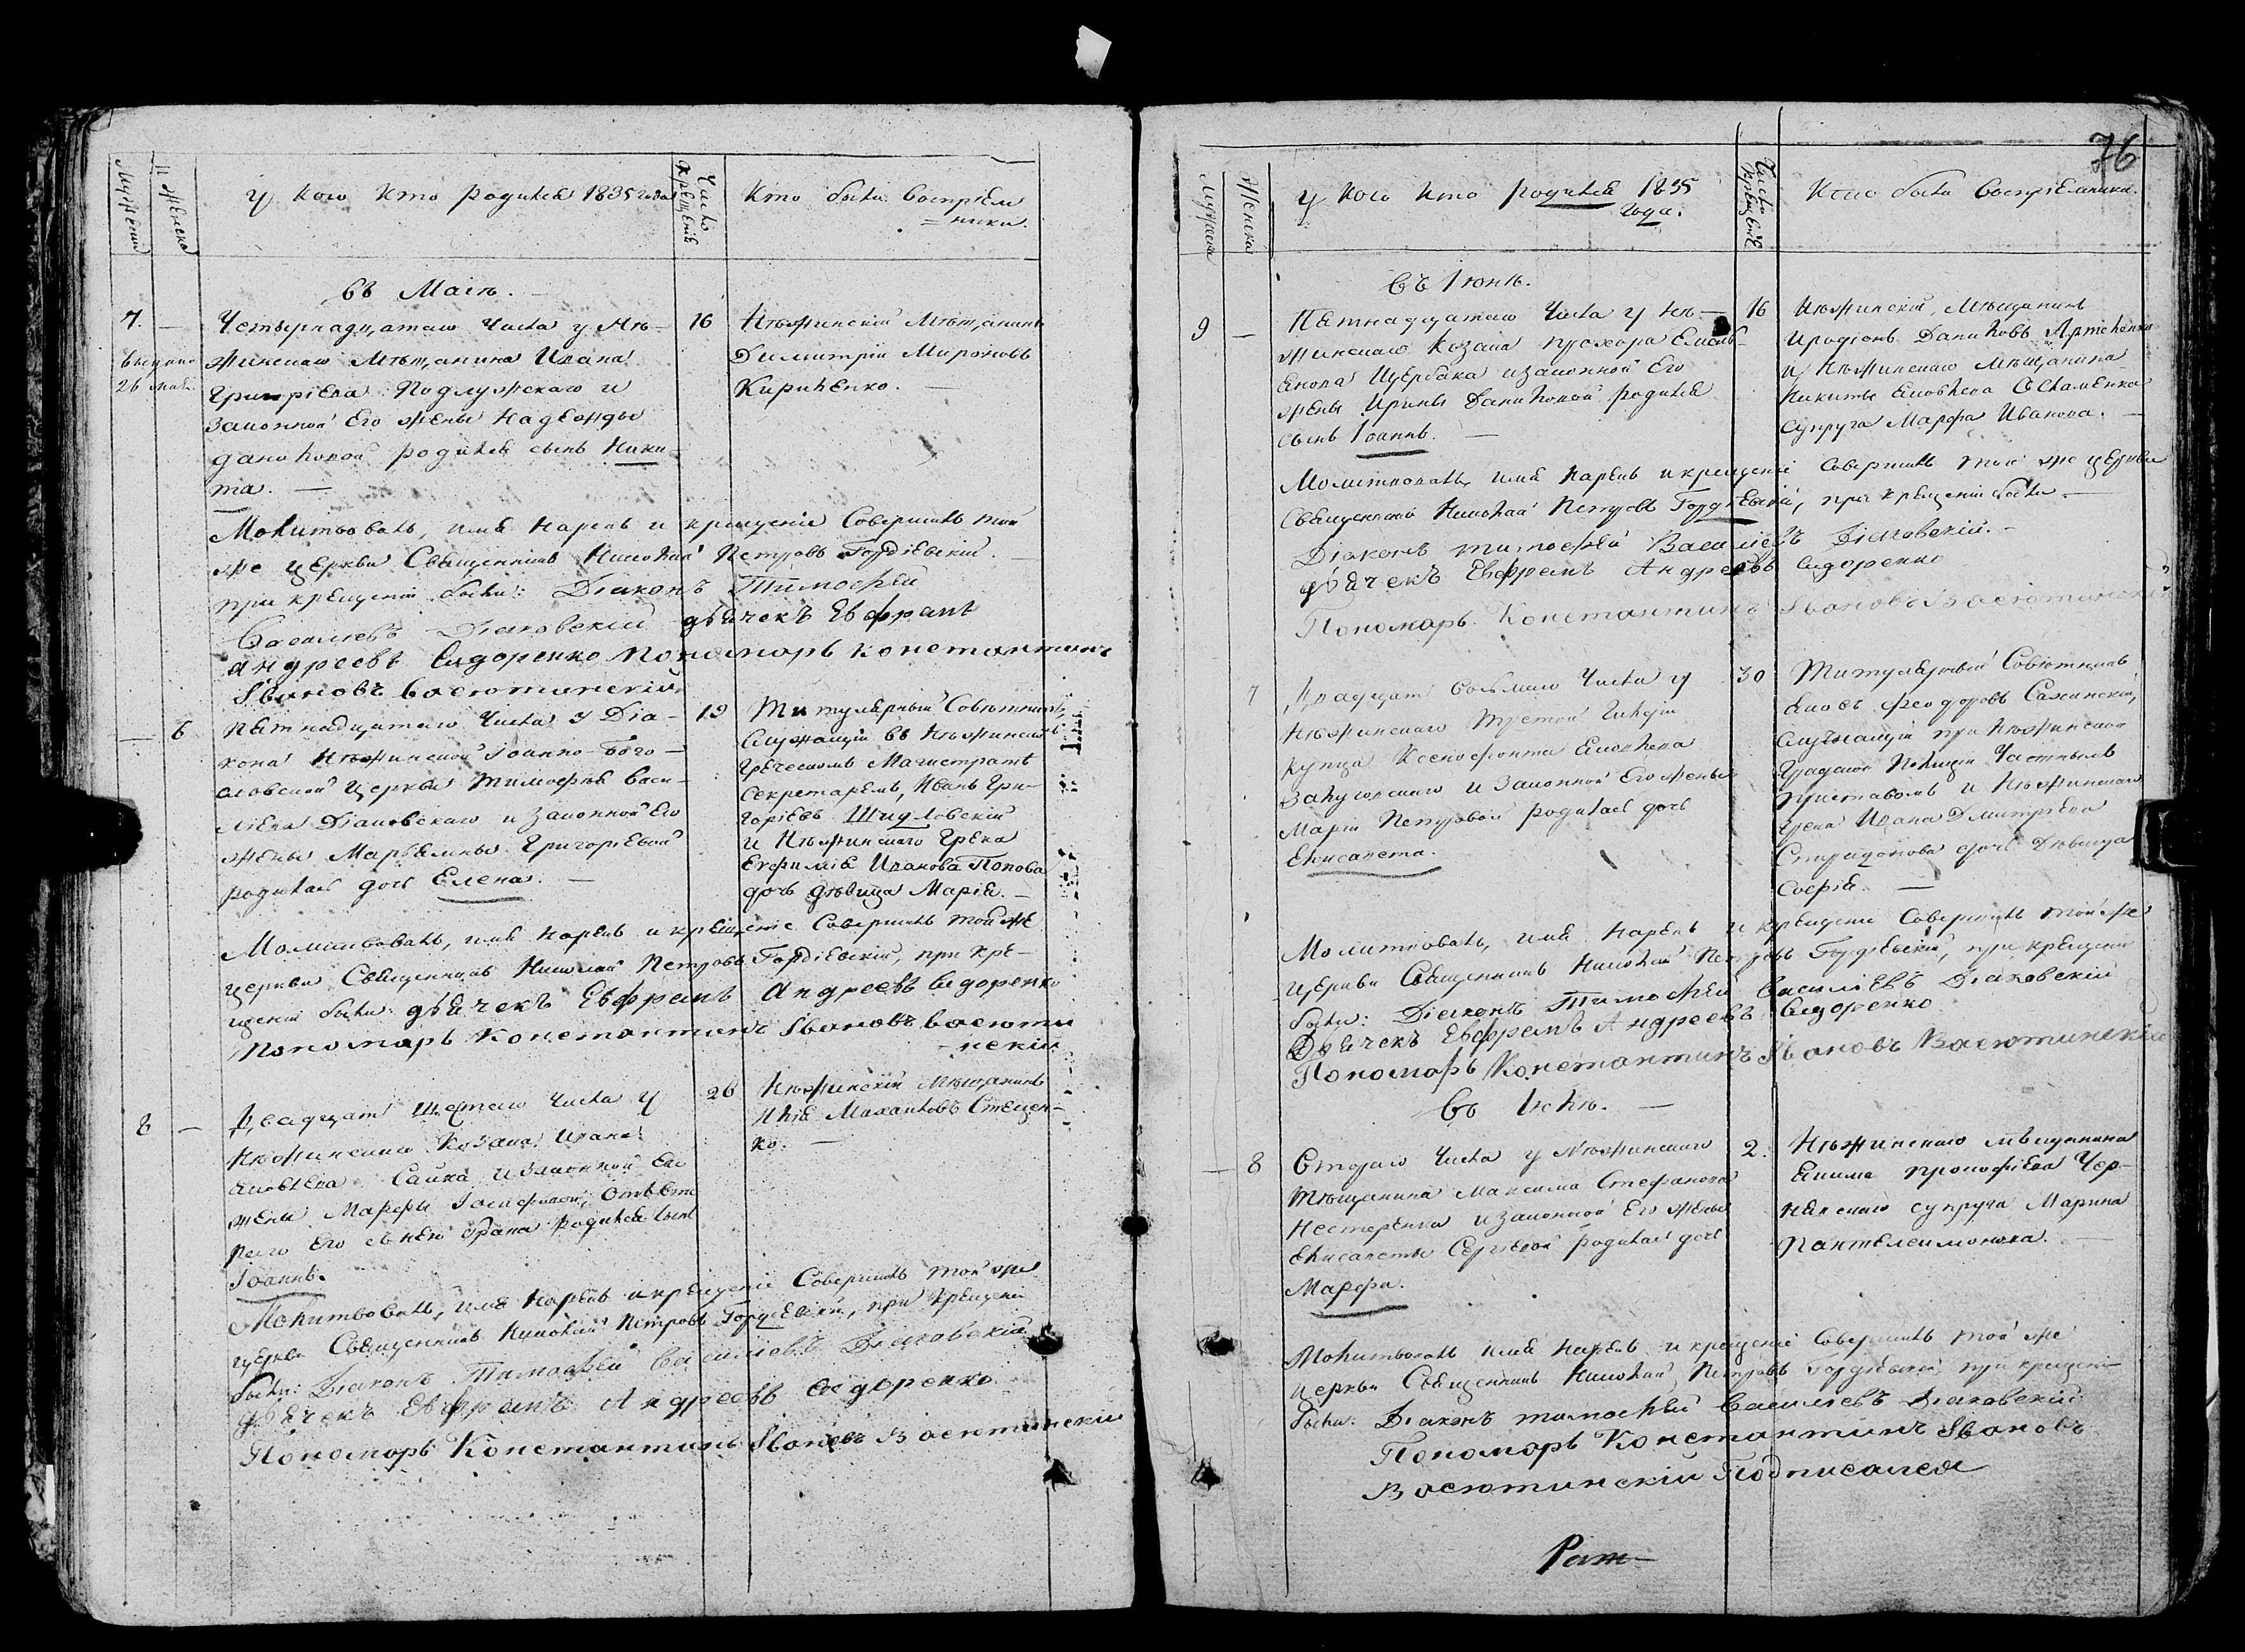 Мужеска
Женска
У кого кто родился 1835 года
Число крещенія
Кто были воспріем
=ники.
въ Маіѣ.
7. —
Четырнадцатаго числа у Нѣ-
жинскаго мѣщанина Ивана
Григоріева Подлужскаго и
законной его жены Надежды
Даниловой родился сынъ Ники-
та. —
16
Нѣжинскій мѣщанинъ
Димитрій Мироновъ
Кириченко. —
Выдано
26 мая.
Молитвовалъ, имя нарекъ и крещеніе совершилъ той
же церкви Священникъ Николай Петровъ Гордіевскій. —
при крещеніи были: Діаконъ Тимофей
Василіевъ Діаковскій дьячекъ Евфрапъ
Андреевъ Сидоренко Пономарь Константинъ
Ивановъ Васютинскій
— 6
Пятнадцатаго числа у Діа-
кона Нѣжинской Іоанно-Бого-
словской церкви Тимофея Васи-
ліева Діаковскаго и законной его
жены Марьямны Григоріевой
родилась дочь Елена. —
19
Титулярный Совѣтникъ,
служащій въ Нѣжинскомъ
Греческомъ Магистратѣ
Секретаремъ, Иванъ Гри-
горіевъ Шидловскій
и Нѣжинскаго Грека
Евфимія Иванова Попова
дочь дѣвица Марія. —
Молитвовалъ, имя нарекъ и крещеніе совершилъ той же
церкви Священникъ Николай Петровъ Гордіевскій, при кре-
щеніи были: дьячекъ Евфрапъ Андреевъ Сидоренко
Пономарь Константинъ Ивановъ Васюти
-нскій
8 —
Двадцать шестаго числа у
Нѣжинскаго Козака Ивана
Яковлева Сайка и законной его
жены Марфы Іосифовой, отъ
его съ нею брака родился сынъ
Іоаннъ.
26
Нѣжинскій мѣщанинъ
Илія Михайловъ Стецен-
ко. —
Молитвовалъ, имя нарекъ и крещеніе совершилъ той же
церкви Священникъ Николай Петровъ Гордіевскій, при крещеніи
были: Діаконъ Тимофей Василіевъ Діаковскій
Дьячекъ Евфрапъ Андреевъ Сидоренко
Пономарь Константинъ Ивановъ Васютинскій
76
Мужеска
Женска
У кого кто родился 1835
года.
Число крещенія
Кто были воспріемники.
въ Іюнѣ.
9 —
Пятнадцатаго числа у Нѣ-
жинскаго Козака Прохора Емель-
янова Щербака и законной его
жены Ирины Даниловой родился
сынъ Іоаннъ. —
16
Нѣжинскій мѣщанинъ
Иродіонъ Даниловъ
и Нѣжинскаго мѣщанина
Никиты Яковлева
супруга Марфа Иванова. —
Молитвовалъ, имя нарекъ и крещеніе совершилъ той же церкви
Священникъ Николай Петровъ Гордіевскій, при крещеніи были —
Діаконъ Тимофей Василіевъ Діаковскій. —
Дьячекъ Евфрапъ Андреевъ Сидоренко
Пономарь Константинъ Ивановъ Васютинскій
7
Двадцать восьмаго числа у
Нѣжинскаго третей гильдіи
купца Ксенофонта Яковлева
и законной его жены
Маріи Петровой родилась дочь
Елисавета.
30
Титулярный Совѣтникъ
Яковъ Феодоровъ
служащій при Нѣжинской
Градской Полиціи Частнымъ
приставомъ и Нѣжинскаго
грека Ивана Дмитріева
Спиридонова дочь дѣвица
Софія. —
Молитвовалъ, имя нарекъ и крещеніе совершилъ той же
церкви Священникъ Николай Петровъ Гордіевскій, при крещеніи
были: Діаконъ Тимофей Василіевъ Діаковскій
Дьячекъ Евфрапъ Андреевъ Сидоренко
Пономарь Константинъ Ивановъ Васютинскій
въ Іюлѣ. —
— 8
Втораго числа у Нѣжинскаго
мѣщанина Максима Стефанова
Нестеренка и законной его жены
Елисаветы Сергіевой родилась дочь
Марфа.
2.
Нѣжинскаго мѣщанина
Якима Прокофіева Чер-
нявскаго супруга Марина
Пантелеимонова. —
Молитвовалъ имя нарекъ и крещеніе совершилъ той же
церкви Священникъ Николай Петровъ Гордіевскій, при крещеніи
были: Діаконъ Тимофей Василіевъ Діаковскій
Пономарь Константинъ Ивановъ
Васютинскій Подписался